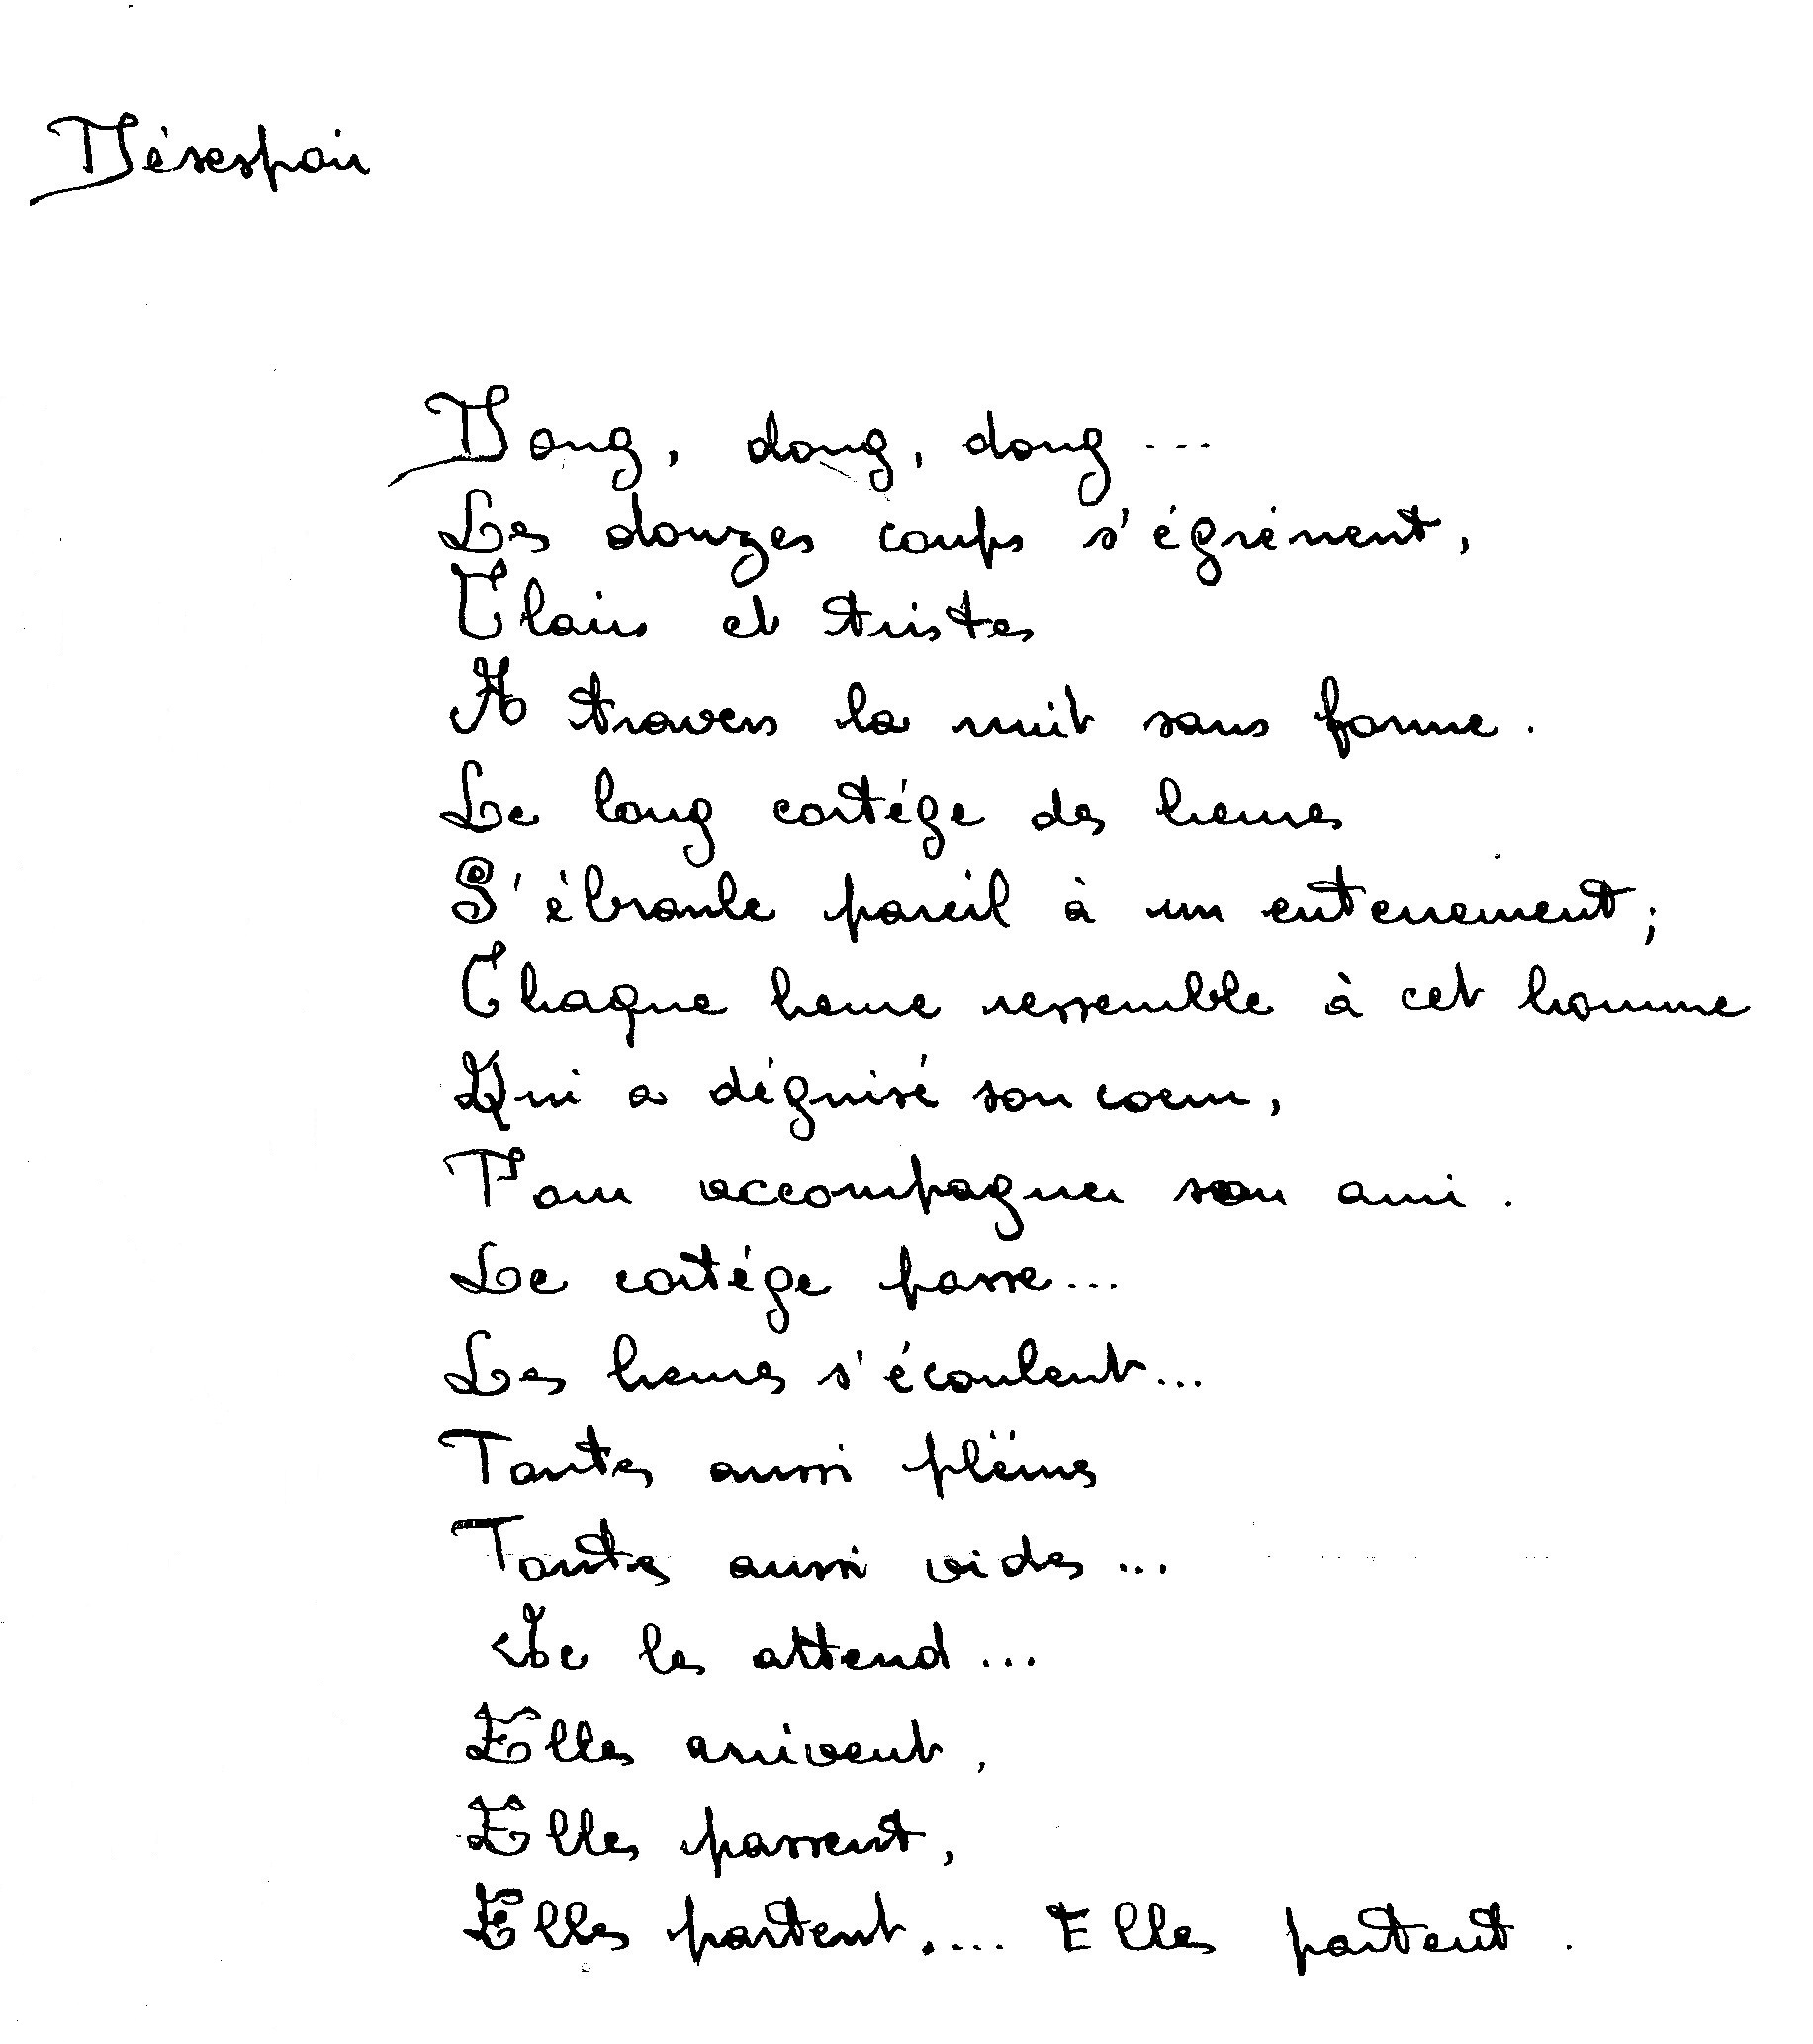 Désespoir
Dong, dong, dong ...
Les douzes coups s'égrénent,
Clairs et tristes
A travers la nuit sans forme.
Le long cortége des heures
S'ébranle pareil à un enterrement;
Chaque heure ressemble à cet homme
Qui a déguisé son coeur,
Pour accompagner son ami.
Le cortége passe...
Les heures s'écoulent...
Toutes aussi plëines
Toutes aussi vides...
Je les attend...
Elles arrivent,
Elles passent,
Elles partent.... Elles partent.